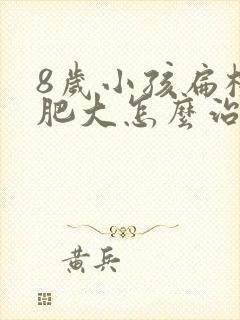 8歲小孩扁桃
肥大怎麼治
黃兵